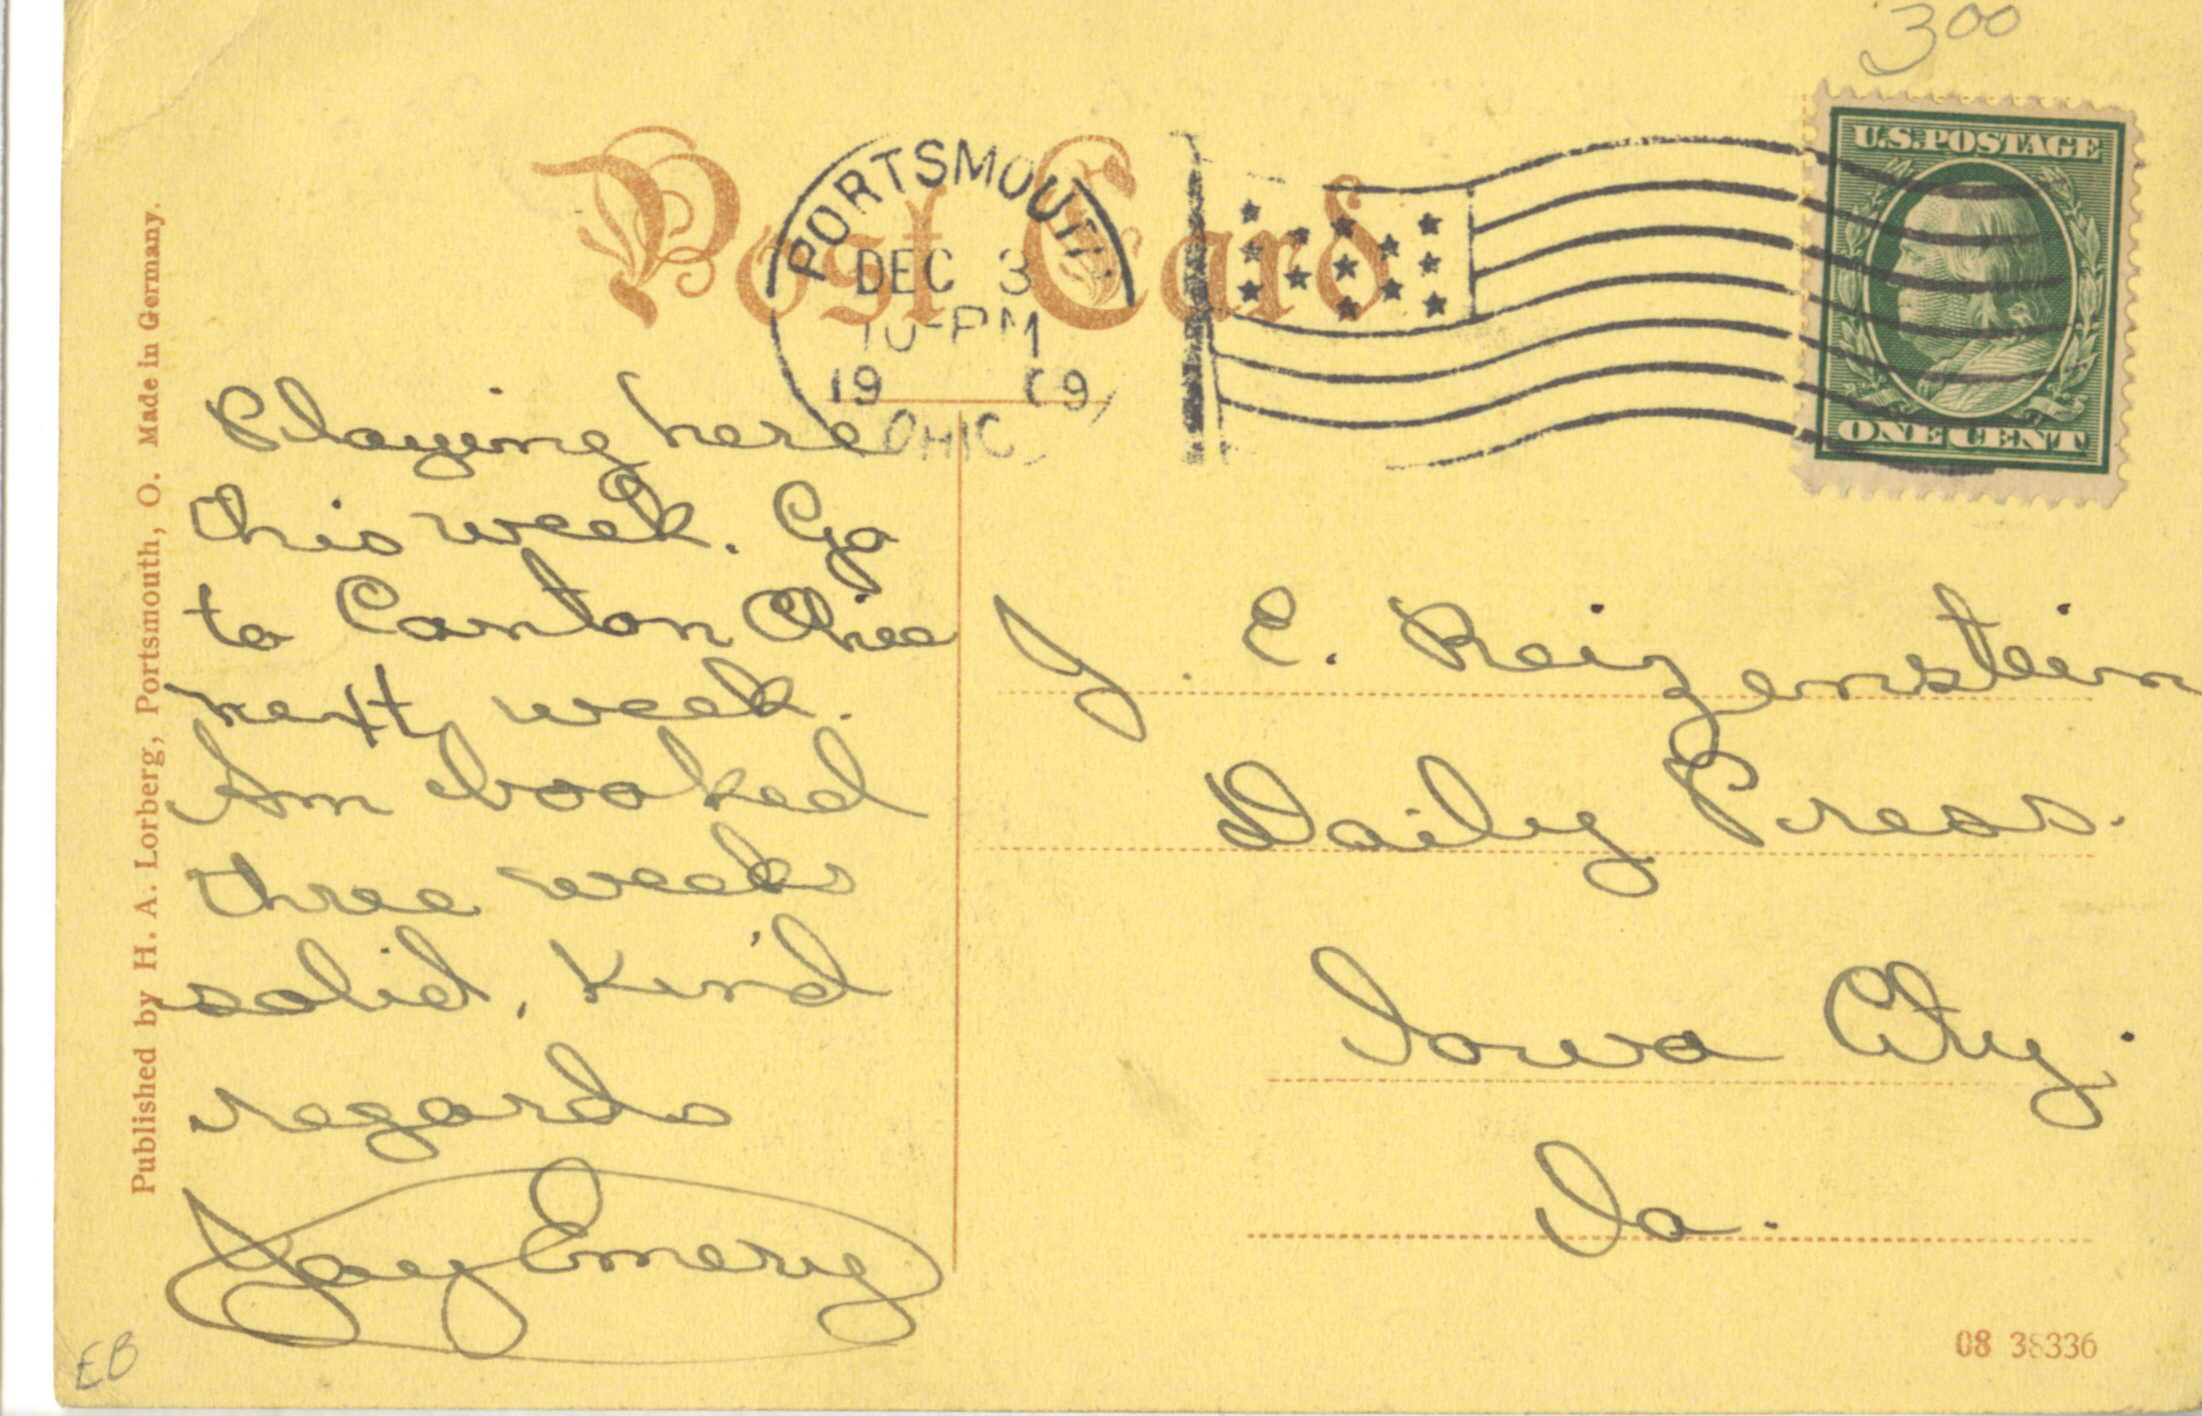 3 00
Post Card
PORTSMOUTH
DEC 3
10-PM
19 09
OHIO
U.S. POSTAGE
ONE CENT
Published by H. A. Lorberg, Portsmouth, O. Made in Germany.
Playing here
this week. Go
to Canton Ohio
next week.
Am booked
three weeks
solid, Kind
regards
Jay Emery
J. E. Reizenstein
Daily Press.
Iowa City.
Ia.
EB
08 38336